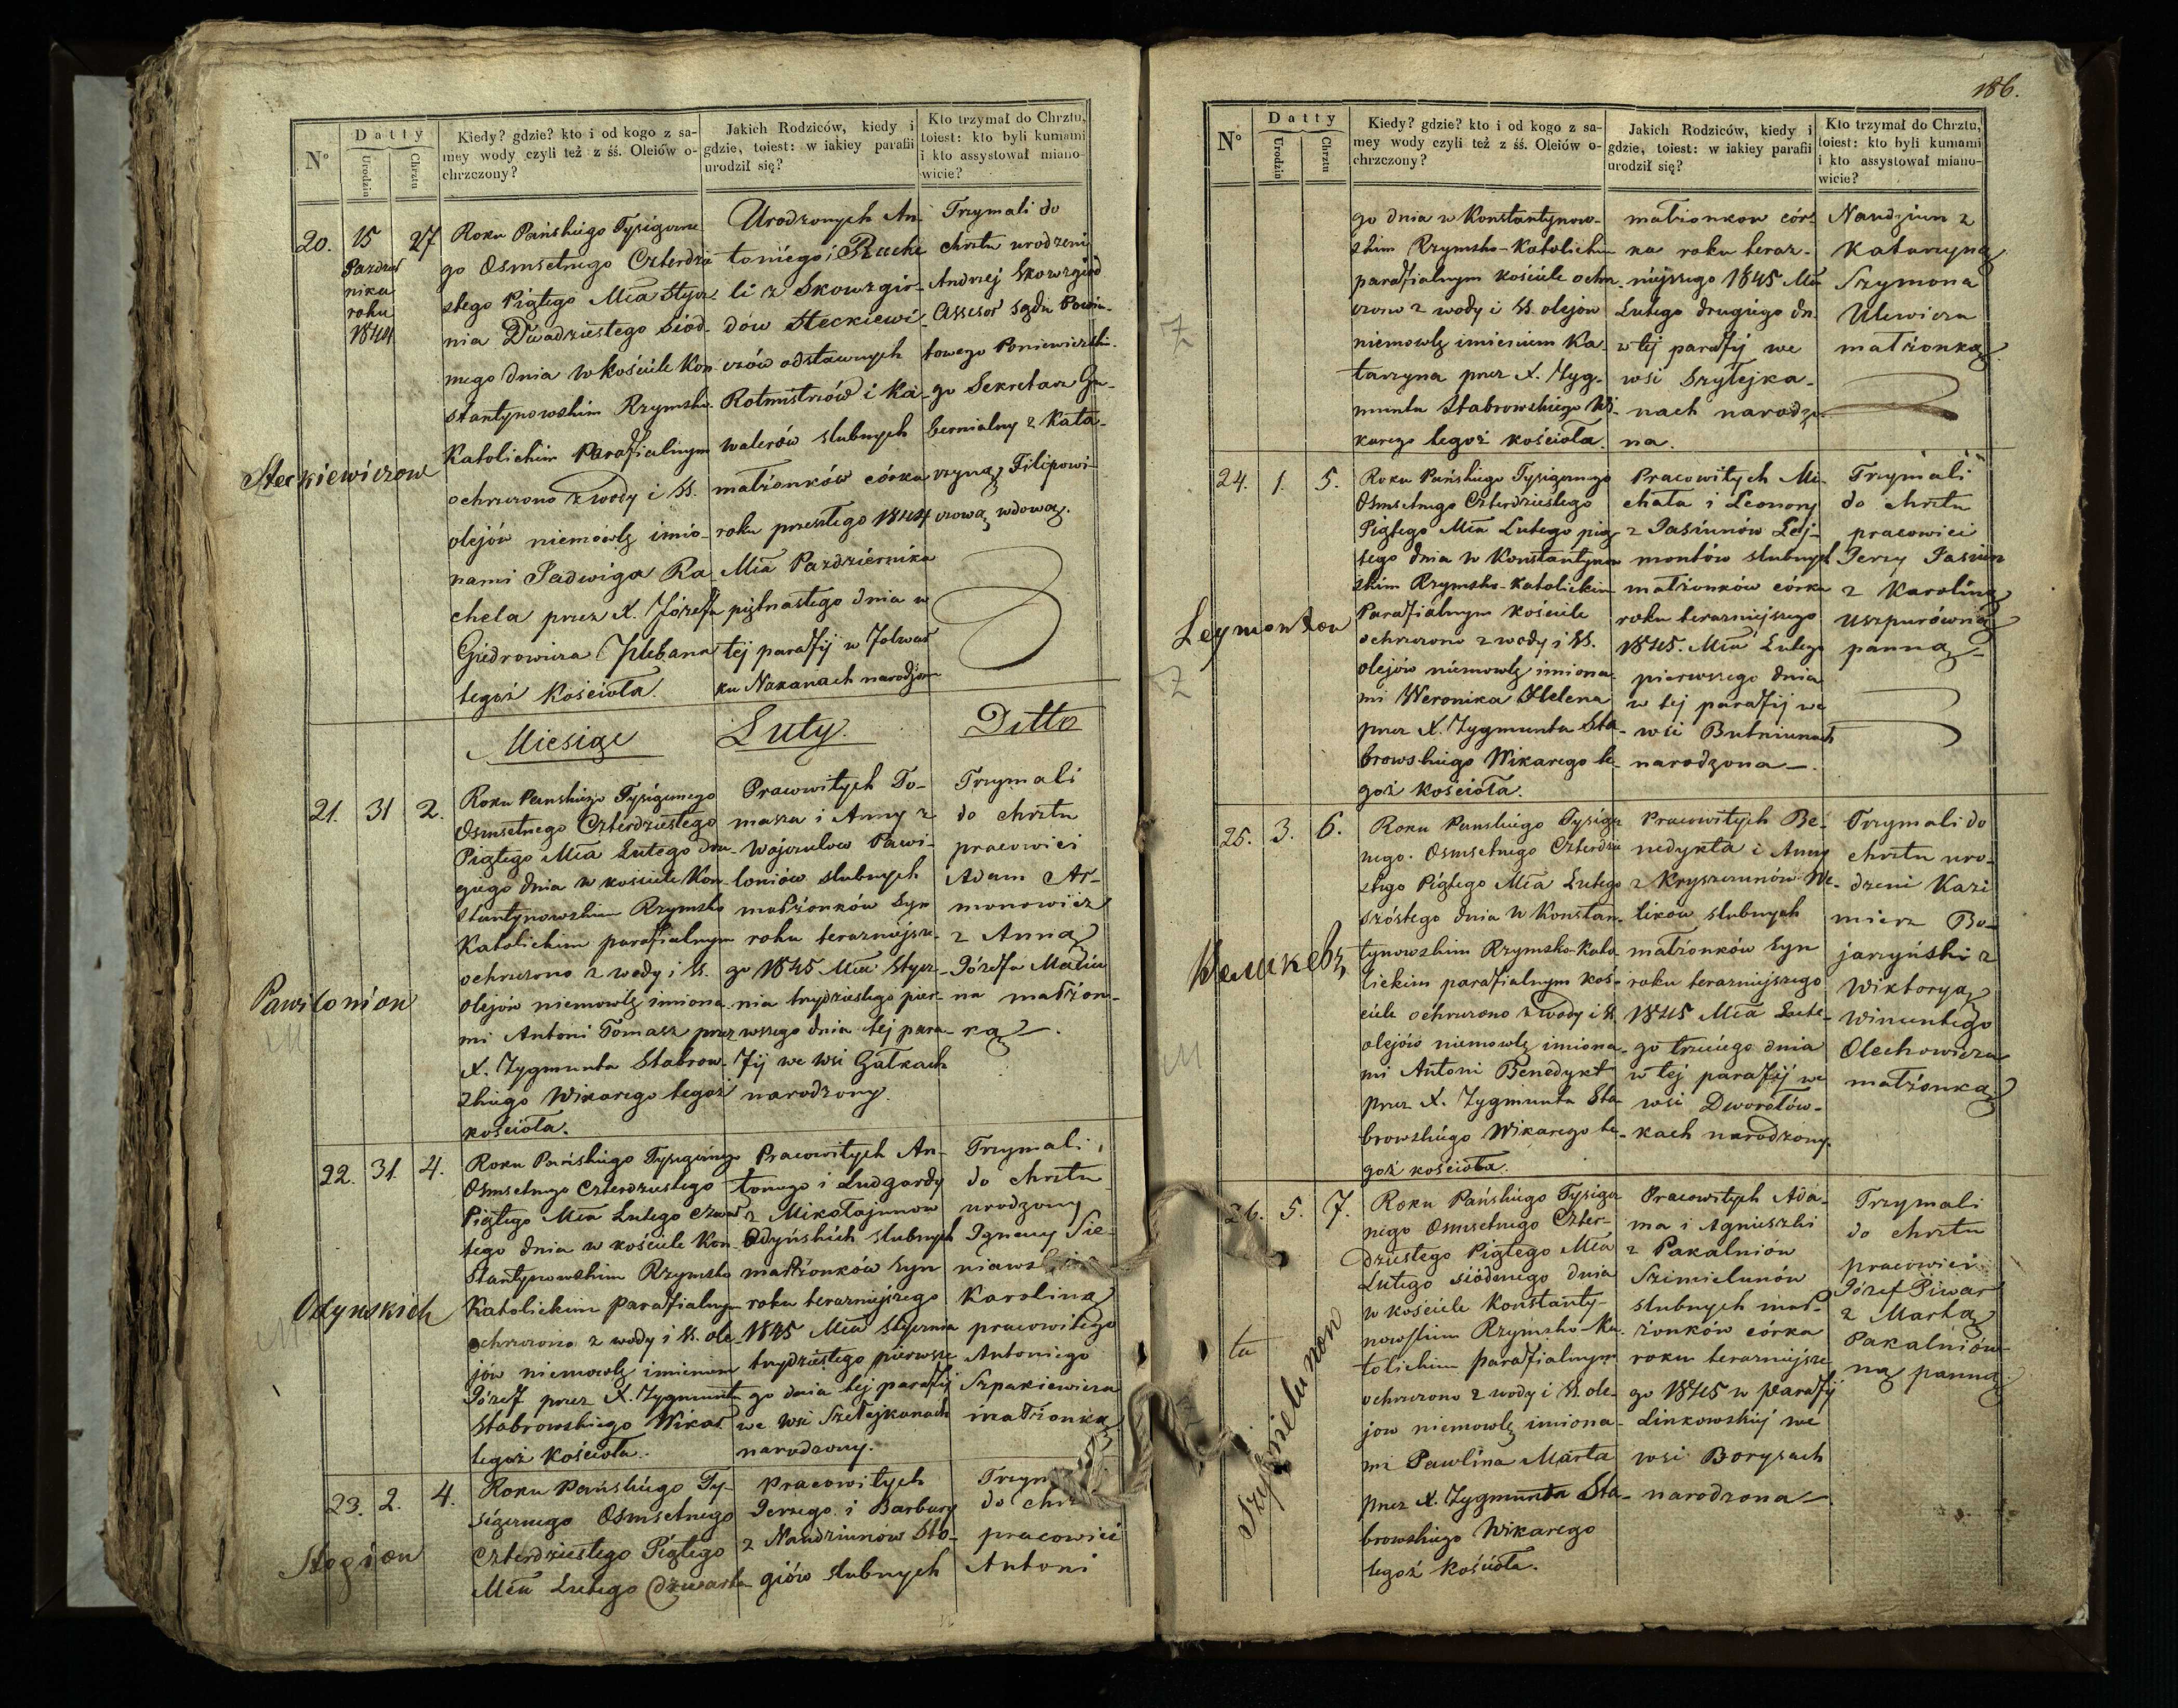 186.
N°
Datty
Urodzin
Chrztu
Kiedy? gdzie? kto i od kogo z sa-
mey wody czyli też z śś. Oleiów o-
chrzczony?
Jakich Rodziców, kiedy i
gdzie, toiest: w iakiey parafii
urodził się?
Kto trzymał do Chrztu,
toiest: kto byli kumami
i kto assystował miano-
wicie?
20.
15
Paździer
nika
roku
1844
27
Steckiewiczow
Roku Pańskiego Tysiączne
go Osmsetnego Czterdzie
stego Piątego Mca Stycz
nia Dwadziestego Siód-
mego dnia w Kościele Kon
stantynowskim Rzymsko
Katolickim Parafialnym
ochrzczono z wody i SS.
olejów niemowlę imio-
nami Jadwiga Ra-
chela przez X. Józefa
Giedrowicza Plebana
tegoż Kościoła.
Urodzonych An-
toniego i Rache
li z Skowzgir-
dów Steckiewi
czów odstawnych
Rotmistrzów i Ka-
walerów slubnych
małżonków córka
roku przeszłego 1844
Mca Października
piętnastego dnia w
tej parafij w folwar
ku Nakanach narodzon
Trzymali do
chrztu urodzeni
Andrzej Skowzgird
Assesor Sądu Powia-
towego Poniewieżski-
go Sekretarz Gu-
bernialny z Kata-
rzyną Filipowi-
czową wdową.
Miesiąc Luty. Ditto
21.
31
2.
Pawilonion
Roku Pańskiego Tysiącznego
Osmsetnego Czterdziestego
Piątego Mca Lutego dru-
giego dnia w kościele Kon-
stantynowskim Rzymsko
Katolickim parafialnym
ochrzczono z wody i SS.
olejów niemowlę imiona-
mi Antoni Tomasz przez
X. Zygmunta Stabrow-
skiego Wikarego tegoż
kościoła.
Pracowitych To-
masza i Anny z
Wojczulow Pawi-
loniów slubnych
małżonków Syn
roku terazniejsze-
go 1845 Mca Stycz-
nia trzydziestego pier-
wszego dnia tej para-
fij we wsi Gałkach
narodzony.
Trzymali
do chrztu
pracowici
Adam Ar-
monowicz
z Anną
Józefa Malin
na małżon-
ką.
22.
31.
4.
Odynskich
Roku Pańskiego Tysiącznego
Osmsetnego Czterdziestego
Piątego Mca Lutego czwar
tego dnia w kościele Kon-
stantynowskim Rzymsko
Katolickim parafialnym
ochrzczono z wody i SS. ole
jów niemowlę imieniem
Józef przez X. Zygmunta
Stabrowskiego Wikar
tegoż Kościoła.
Pracowitych An-
toniego i Ludgardy
z Mikołajunow
Odyńskich slubnych
małżonków Syn
roku teraznięjszego
1845 Mca Stycznia
trzydziestego pierwsze
go dnia tej parafij
we wsi Szetejkanach
narodzony.
Trzymali
do chrztu
urodzony
Ignacy Sie-
niaws
Karoliną
pracowitego
Antoniego
Szpakiewicza
małżonką
23.
2.
4.
Stogion
Roku Pańskiego Ty-
siącznego Osmsetnego
Czterdziestego Piątego
Mca Lutego Czwarte
Pracowitych
Jerzego i Barbary
z Naudziunów Sto-
giów slubnych
Trzym
do chrz
pracowici
Antoni
N°
Datty
Urodzin
Chrztu
Kiedy? gdzie? kto i od kogo z sa-
mey wody czyli też z śś. Oleiów o-
chrzczony?
Jakich Rodziców, kiedy i
gdzie, toiest: w iakiey parafii
urodził się?
Kto trzymał do Chrztu,
toiest: kto byli kumami
i kto assystował miano-
wicie?
go dnia w Konstantynow-
skim Rzymsko-Katolickim
parafialnym kościele ochrz-
czono z wody i SS. olejów
niemowlę imieniem Ka-
tarzyna przez X. Zyg-
munta Stabrowskiego Wi-
karego tegoż kościoła.
małżonkow cór-
ka roku teraz-
niejszego 1845 Mca
Lutego drugiego dn.
w tej parafij we
wsi Szytejka-
nach narodzo-
na.
Naudziun z
Katarzyną
Szymona
Ulewicza
małżonką
24.
1.
5.
Leymonton
Roku Pańskiego Tysiącznego
Osmsetnego Czterdziestego
Piątego Mca Lutego pią-
tego dnia w Konstantynow
skim Rzymsko-Katolickim
Parafialnym Kościele
ochrzczono z wody i SS.
olejów niemowlę imiona-
mi Weronika Helena
przez X. Zygmunta Sta-
browskiego Wikarego te-
goż Kościoła.
Pracowitych Mi-
chała i Leonory
z Jasiunów Lej-
montów slubnych
małżonków córka
roku teraznięjszego
1845. Mca Lutego
pierwszego dnia
w tej parafij we
wsi Butniunach
narodzona.
Trzymali
do chrztu
pracowici
Jerzy Jasiun
z Karoliną
Uszpurówną
panną
25.
3.
6.
Великевъ
Roku Pańskiego Tysiącz
nego Osmsetnego Czterdzie
stego Piątego Mca Lutego
szóstego dnia w Konstan-
tynowskim Rzymsko-Kato
lickim parafialnym koś-
ciele ochrzczono z wody i SS.
olejów niemowlę imiona-
mi Antoni Benedykt
przez X. Zygmunta Sta-
browskiego Wikarego te-
goż kościoła.
Pracowitych Be-
nedykta i Anny
z Kryszczunów We-
likow slubnych
małżonków Syn
roku teraznięjszego
1845 Mca Lute-
go trzeciego dnia
w tej parafij we
wsi Dworalów-
kach narodzony.
Trzymali do
chrztu uro-
dzeni Kazi
mierz Bo-
jarzyński z
Wiktoryą
Wincentego
Olechowicza
małżonką
26.
5.
7.
tu
Szymielunon
Roku Pańskiego Tysiącz
nego Osmsetnego Czter-
dziestego Piątego Mca
Lutego siódmego dnia
w kościele Konstanty-
nowskim Rzymsko-Ka-
tolickim parafialnym
ochrzczono z wody i SS. ole-
jow niemowlę imiona-
mi Pawlina Marta
przez X. Zygmunta Sta-
browskiego Wikarego
tegoż Kościoła.
Pracowitych Ada-
ma i Agnieszki
z Pakalniów
Szimielunów
slubnych mał-
żonków córka
roku teraznięjsze
go 1845 w parafij
Linkowskiej we
wsi Borysach
narodzona.
Trzymali
do chrztu
pracowici
Józef Piwar
z Martą
Pakalniów-
ną panną